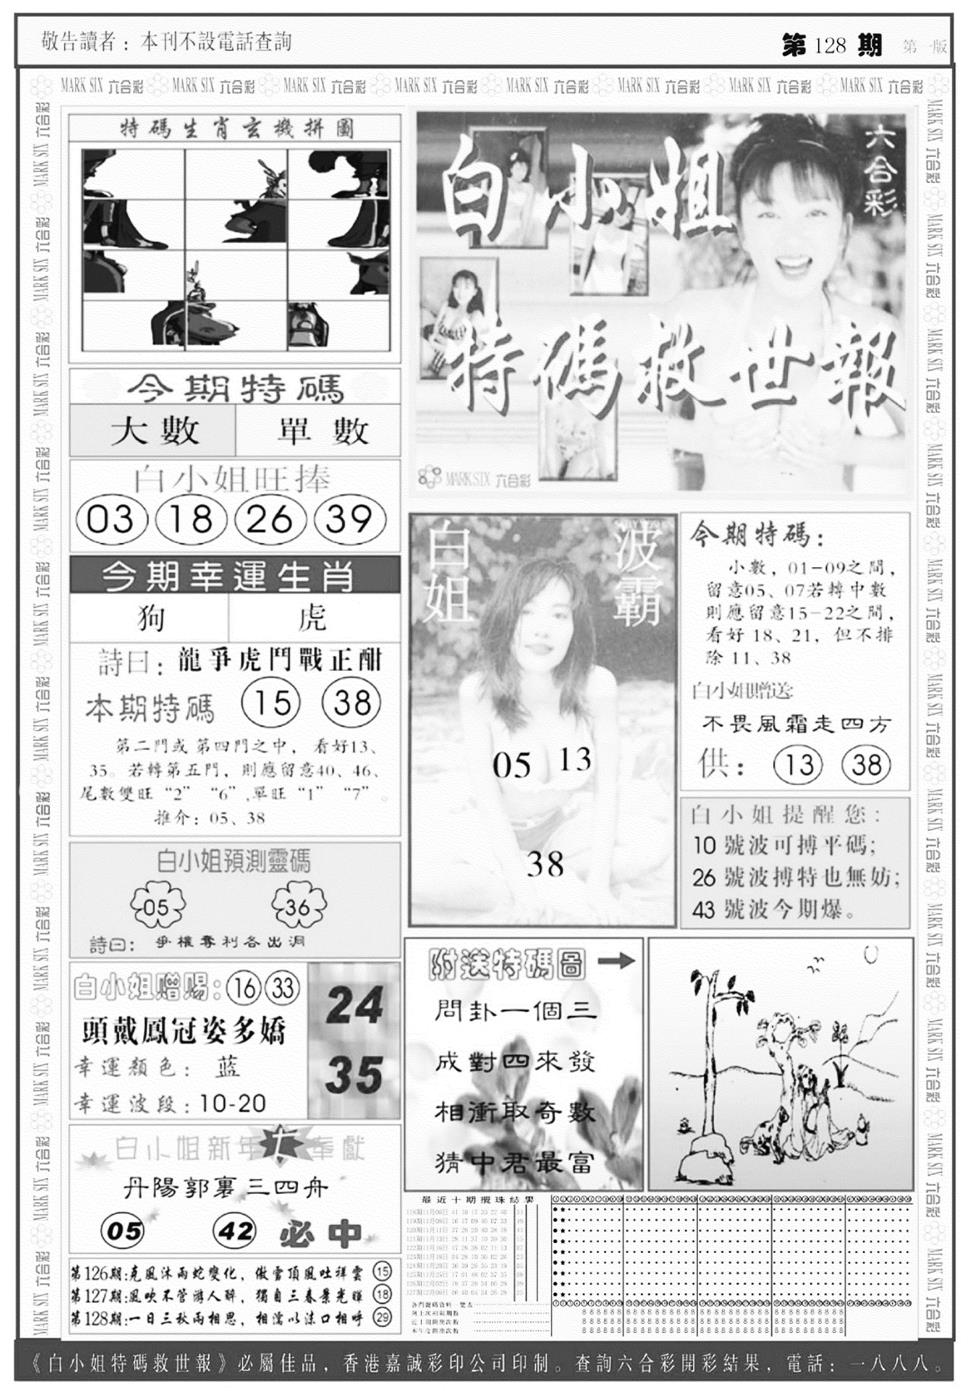 敬告讀者：本刊不設電話查詢
第 128 期 第一版
MARK SIX 六合彩 MARK SIX 六合彩 MARK SIX 六合彩 MARK SIX 六合彩 MARK SIX 六合彩 MARK SIX 六合彩 MARK SIX 六合彩 MARK SIX 六合彩
特碼生肖玄機拼圖
六合彩
白小姐
特碼救世報
MARK SIX 六合彩
今期特碼
大數 單數
白小姐旺捧
03 18 26 39
今期幸運生肖
狗 虎
詩曰：龍爭虎鬥戰正酣
本期特碼 15 38
第二門或第四門之中，看好13、
35。若轉第五門，則應留意40、46、
尾數雙旺“2”“6”,單旺“1”“7”。
推介：05、38
白小姐預測靈碼
05 36
詩曰：爭權奪利各出洞
白小姐贈賜：16 33
頭戴鳳冠姿多嬌
幸運顏色：蓝
幸運波段：10-20
24
35
白小姐新年奉獻
丹陽郭裏三四舟
05 42 必中
第126期:克風沐雨蛇變化，傲雪頂風吐祥雲 15
第127期:風吹不管游人醉，獨自三春景光暉 18
第128期:一日三秋兩相思，相濡以沫口相呼 29
白姐
波霸
05 13
38
今期特碼：
小數，01-09之間，
留意05、07若轉中數
則應留意15-22之間，
看好18、21，但不排
除11、38
白小姐贈送:
不畏風霜走四方
供：13 38
白小姐提醒您：
10 號波可搏平碼;
26 號波搏特也無妨;
43 號波今期爆。
附送特碼圖
問卦一個三
成對四來發
相衝取奇數
猜中君最富
最近十期攪珠結果
《白小姐特碼救世報》必屬佳品，香港嘉誠彩印公司印制。查詢六合彩開彩結果，電話：一八八八。